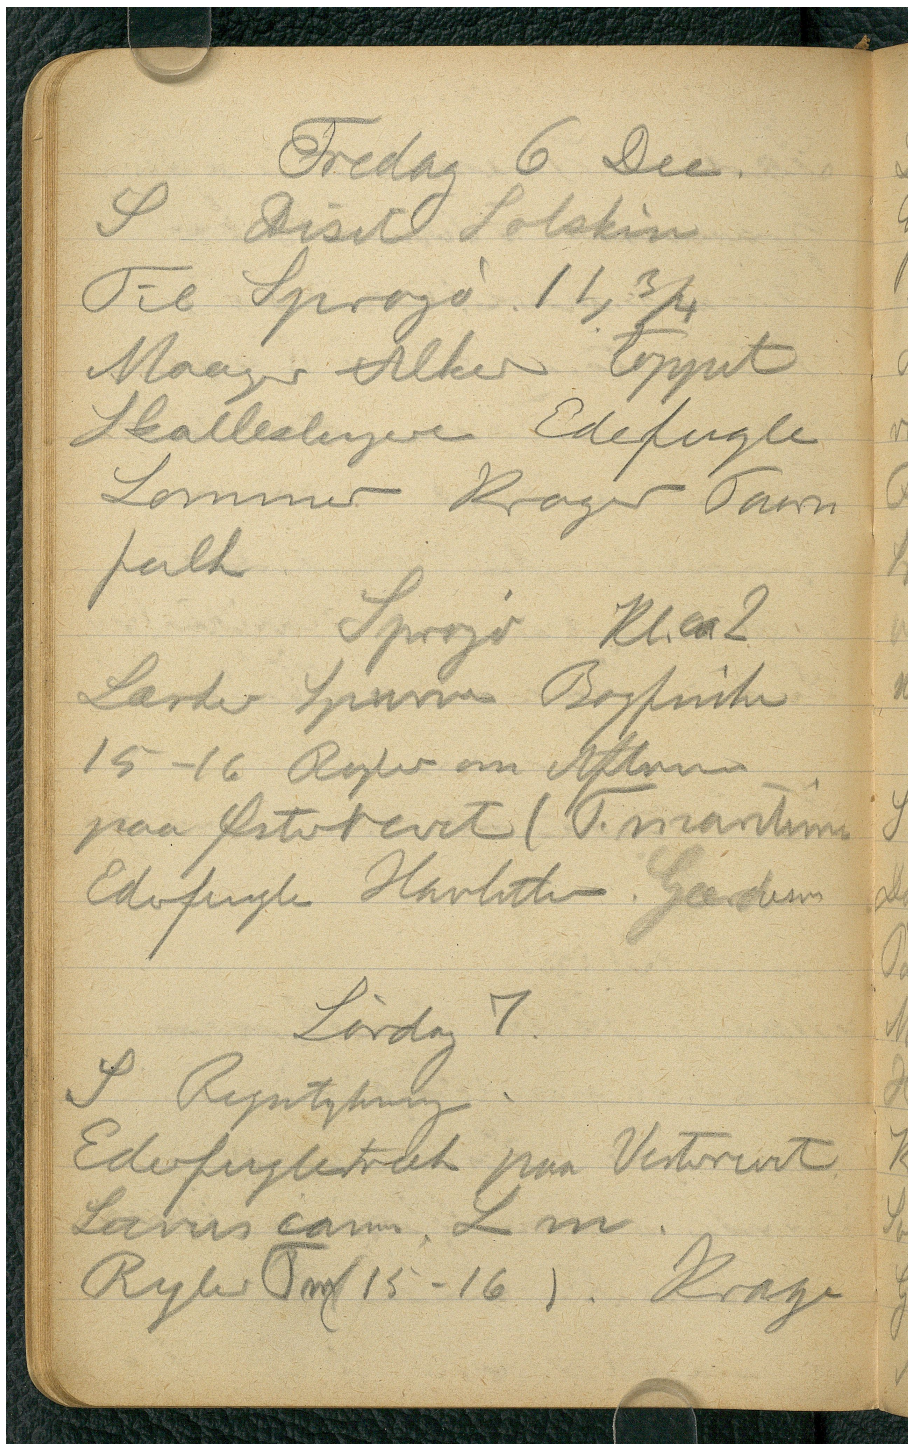 Fredag 6 Dec.
S Diset Solskin
Til Sprogö 11, 3/4
Maager Alker Toppet
Skalleslugere Edefugle
Lommer Krager Taarn
falk
Sprogö Kl. ca 2
Lærker Spurve Bogfinke
15-16 Ryler om Aftnen
paa Østerrevet (T. maritima
Ederfugle Havlitter.
Lördag 7.
S Regntykning.
Ederfugletræk paa Vesterrevet
Larus canus, L m.
Ryler Tm (15-16). Krage